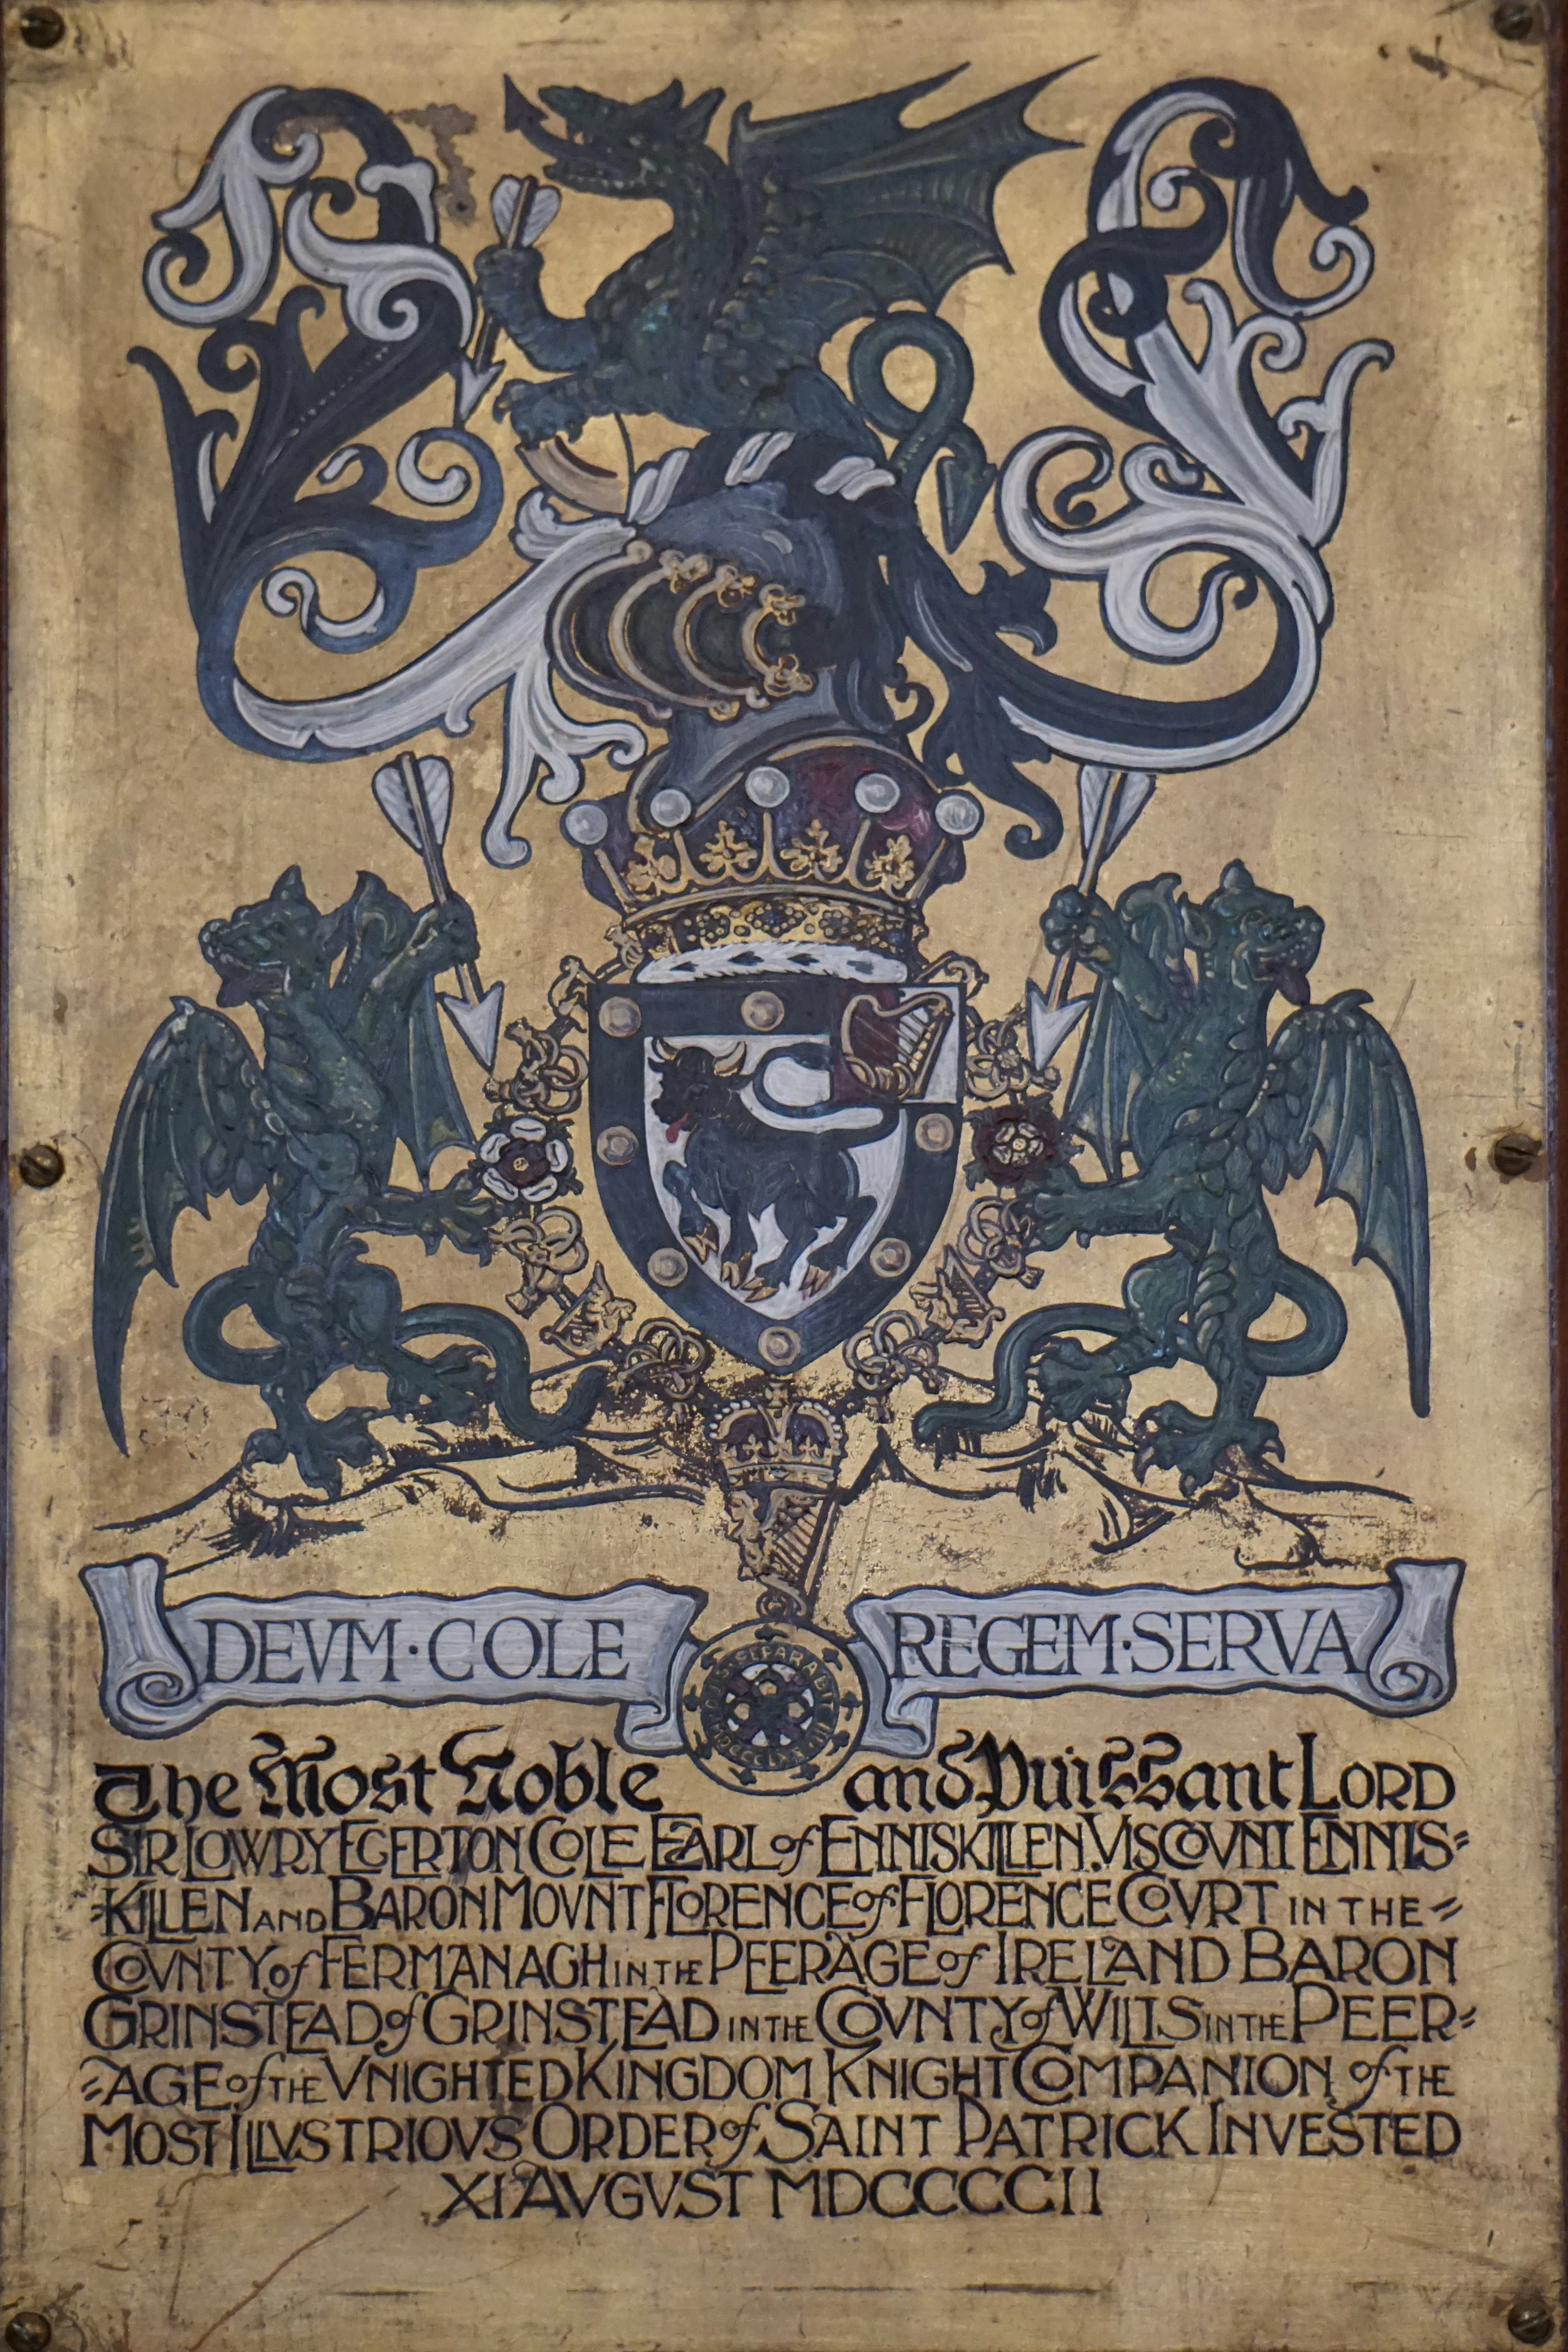 DEVM·COLE REGEM·SERVA
QUIS SEPARABIT MDCCLXXXIII
The Most Noble and Puissant LORD
SIR LOWRY EGERTON COLE EARL of ENNISKILLEN. VISCOVNT ENNIS=
=KILLEN AND BARON MOVNT FLORENCE of FLORENCE COVRT IN THE =
COVNTY of FERMANAGH IN THE PEERAGE of IRELAND BARON
GRINSTEAD of GRINSTEAD IN THE COVNTY of WILTS IN THE PEER=
=AGE of THE VNIGHTED KINGDOM KNIGHT COMPANION of THE
MOST ILLVSTRIOVS ORDER of SAINT PATRICK INVESTED
XI AVGVST MDCCCCII